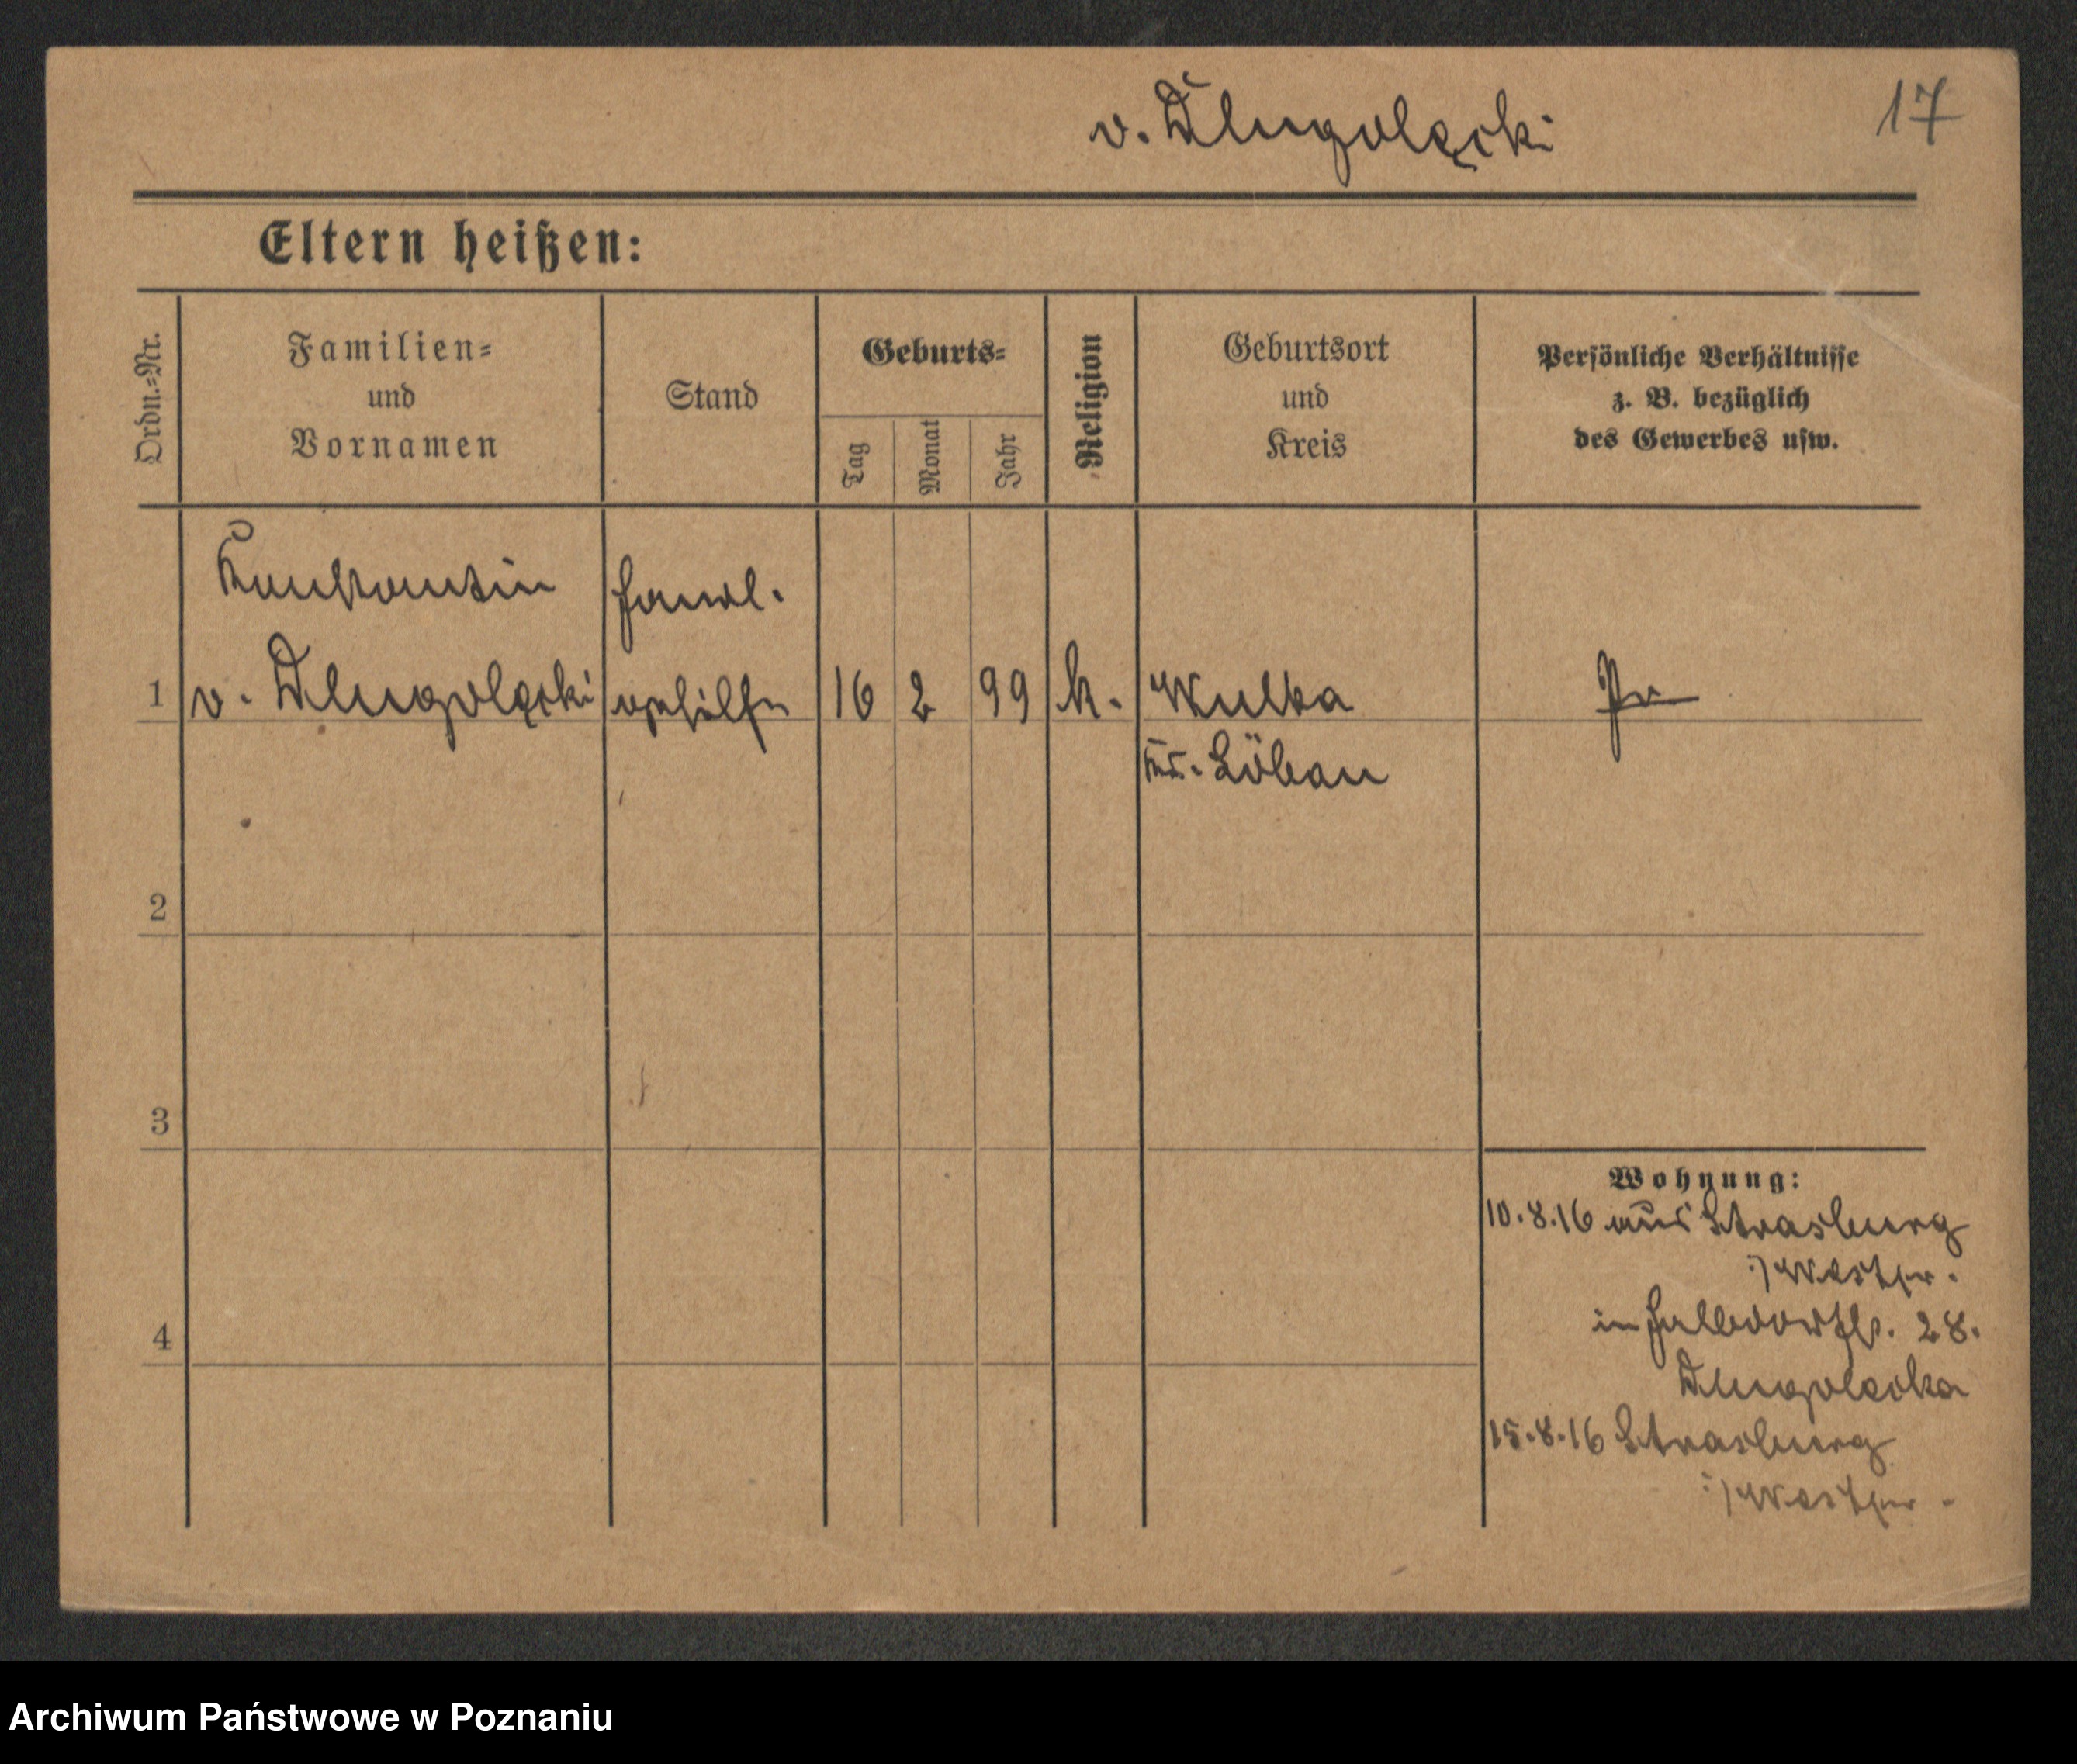 v. Długolęcki
17
Eltern heißen:
Ordn.-Nr.
Familien-
und
Vornamen
Stand
Geburts-
Tag
Monat
Jahr
Religion
Geburtsort
und
Kreis
Persönliche Verhältnisse
z. B. bezüglich
des Gewerbes usw.
Konstantin Handl.
1 v. Dlugolęcki gehilfe 16 2 99 k. Wulka Pr
Kr. Löbau
2
3
4
Wohnung:
10.8.16 aus Strasburg
i/Westpr.
in Halbdorfstr. 28.
Dlugolecka
15.8.16 Strasburg
i/Westpr.
Archiwum Państwowe w Poznaniu